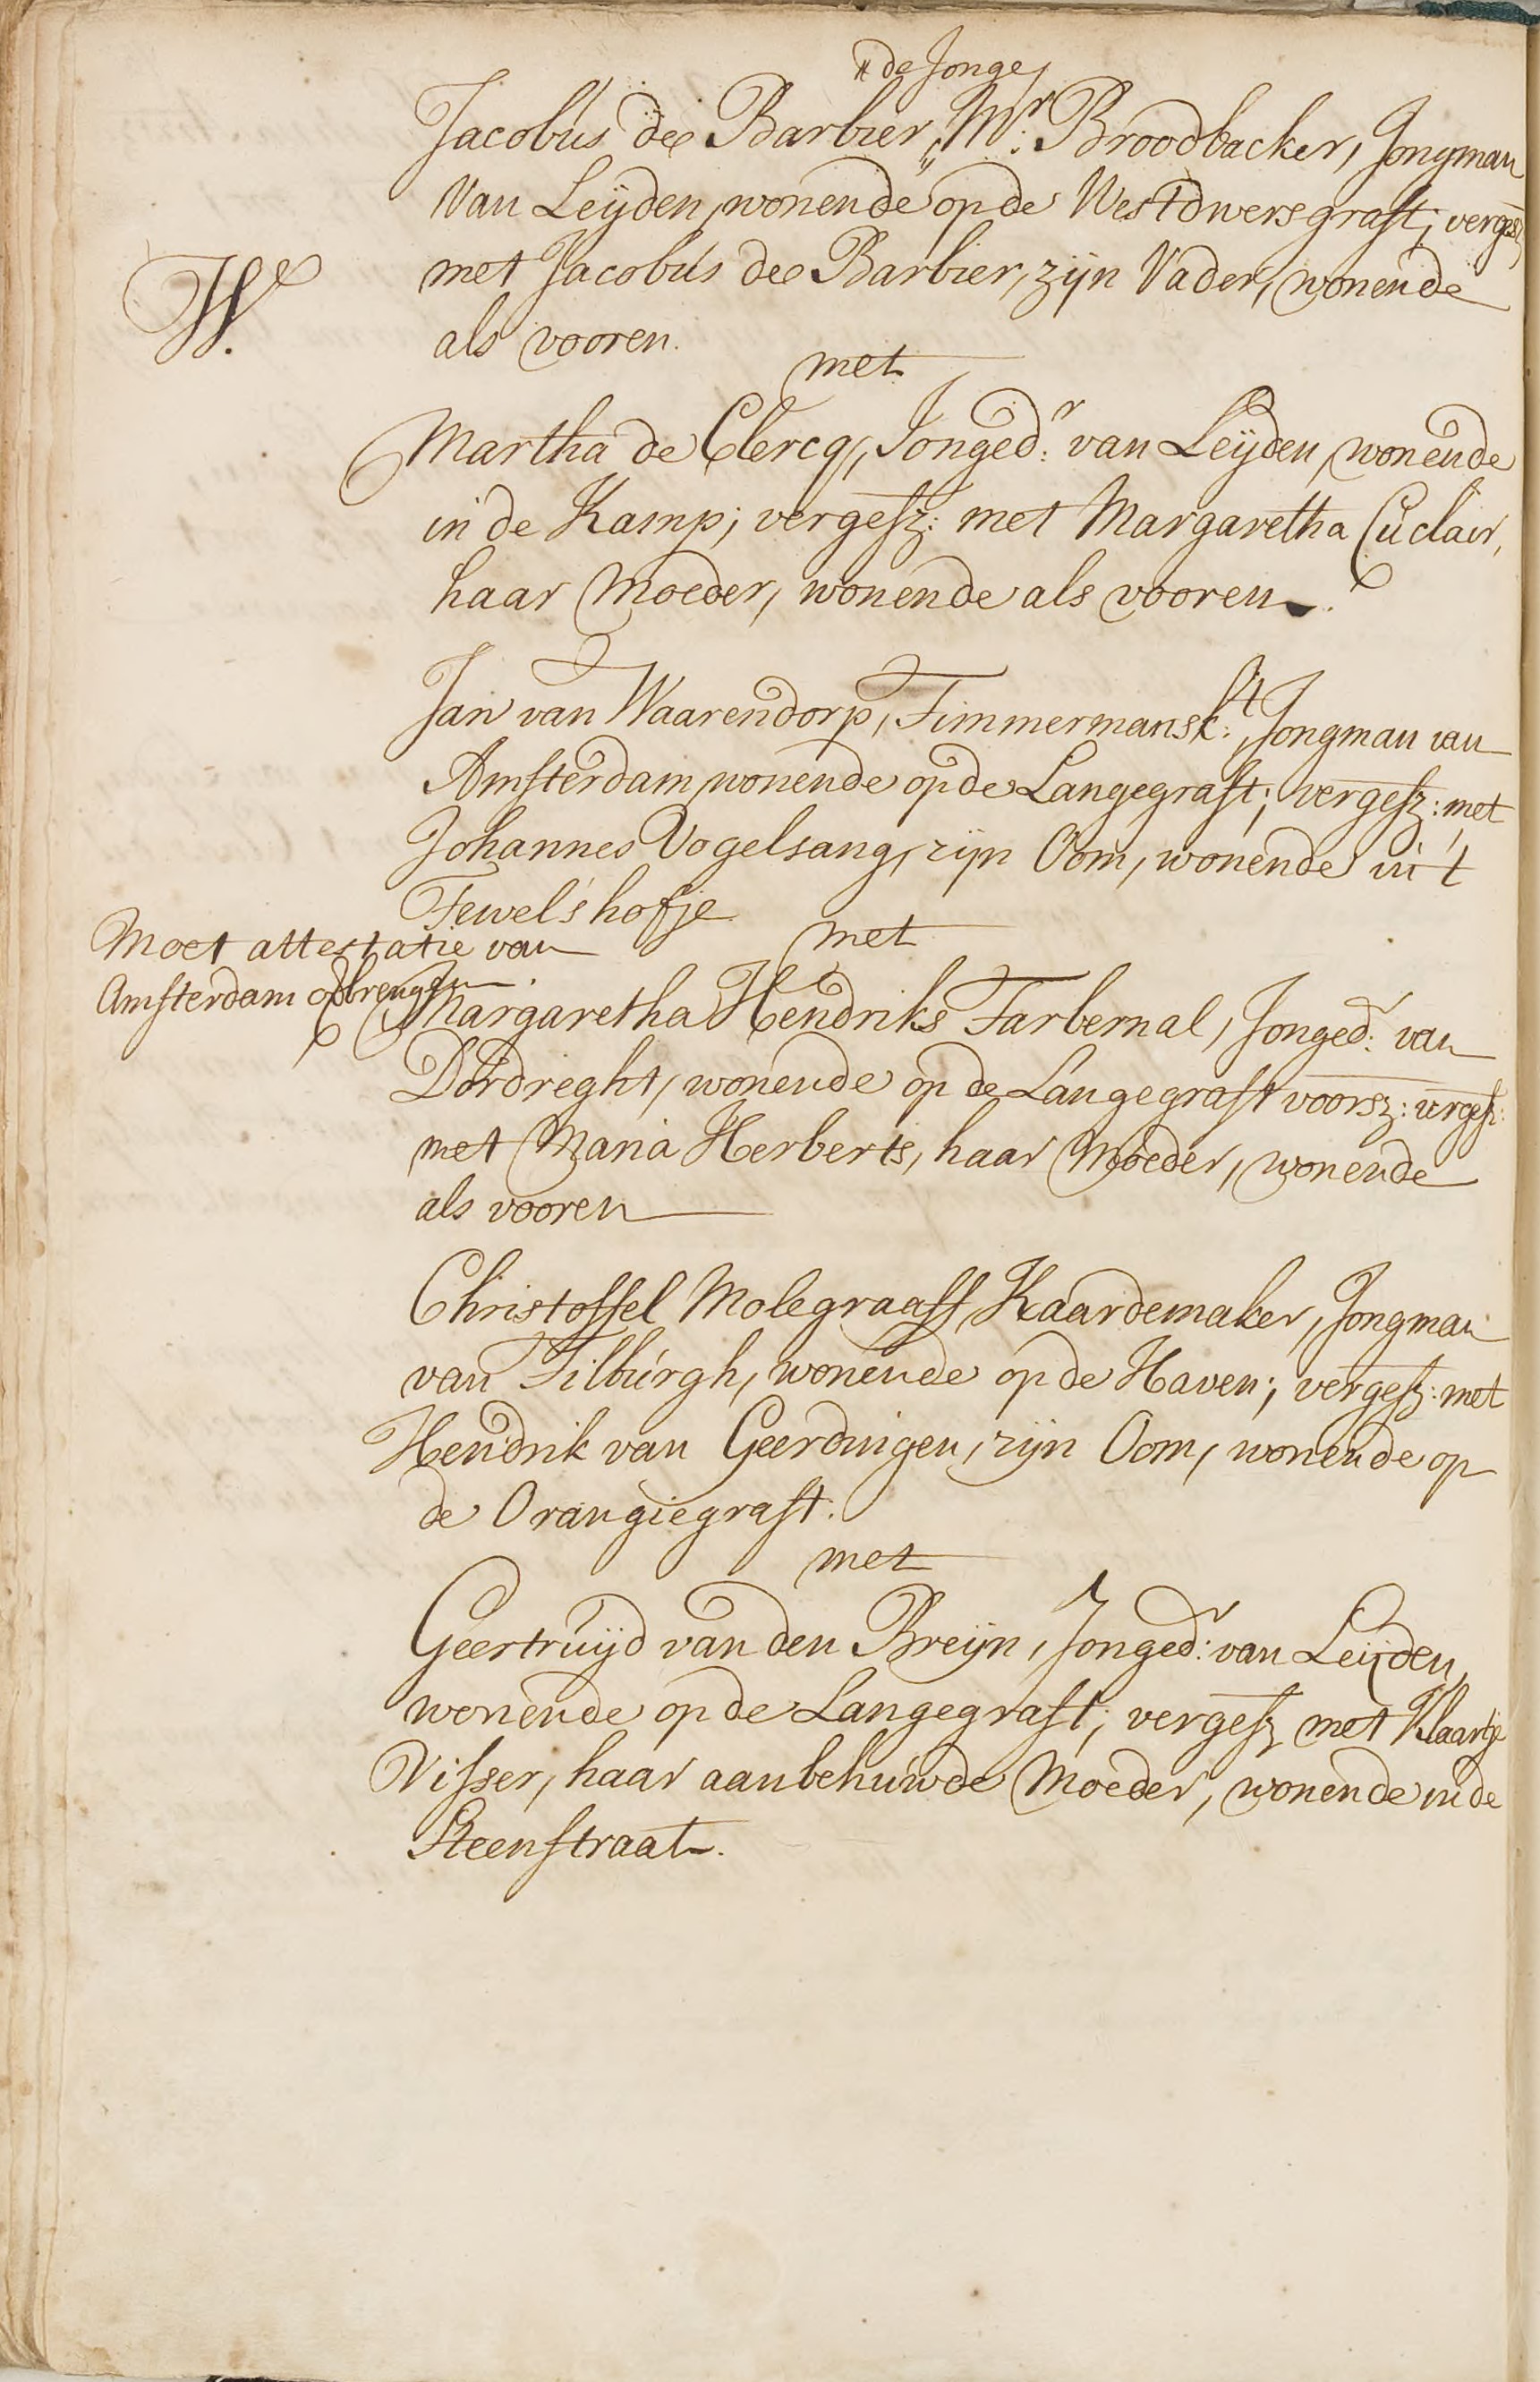 de Jonge,
Jacobus dee Barbier, „ Mr: Broodbacker, Jongman
Van Leijden, wonende op de Westdwersgraft; vergesz
met Jacobus dee Barbier, zijn Vader, wonende
W.
als vooren.
met
Martha de Clercq, Jonged:r van Leijden, wonende
in de Kamp; vergesz: met Margaretha Cuclair,
haar Moeder, wonende als vooren.
Jan van Waarendorp, Timmermansk:t, Jongman van
Amsterdam, wonende op de Langegraft; vergesz: met
Johannes Vogelsang, zijn Oom, wonende in 't
Tewel's hofje
met
Moet attestatie van
Amsterdam opbrengen.
Margaretha Hendriks Tarbernal, Jonged:r van
Dordreght, wonende op de Langegraft voorsz: vergesz:
met Maria Herberts, haar Moeder, wonende
als vooren
Christoffel Molegraaff, Kaardemaker, Jongman
van Tilburgh, wonende op de Haven; vergesz: met
Hendrik van Geerdingen, zijn Oom, wonende op
de Orangiegraft.
met
Geertruijd van den Breijn, Jonged:r van Leijden,
wonende op de Langegraft; vergesz met Klaartje
Visser, haar aanbehuwde Moeder, wonende in de
Steenstraat.